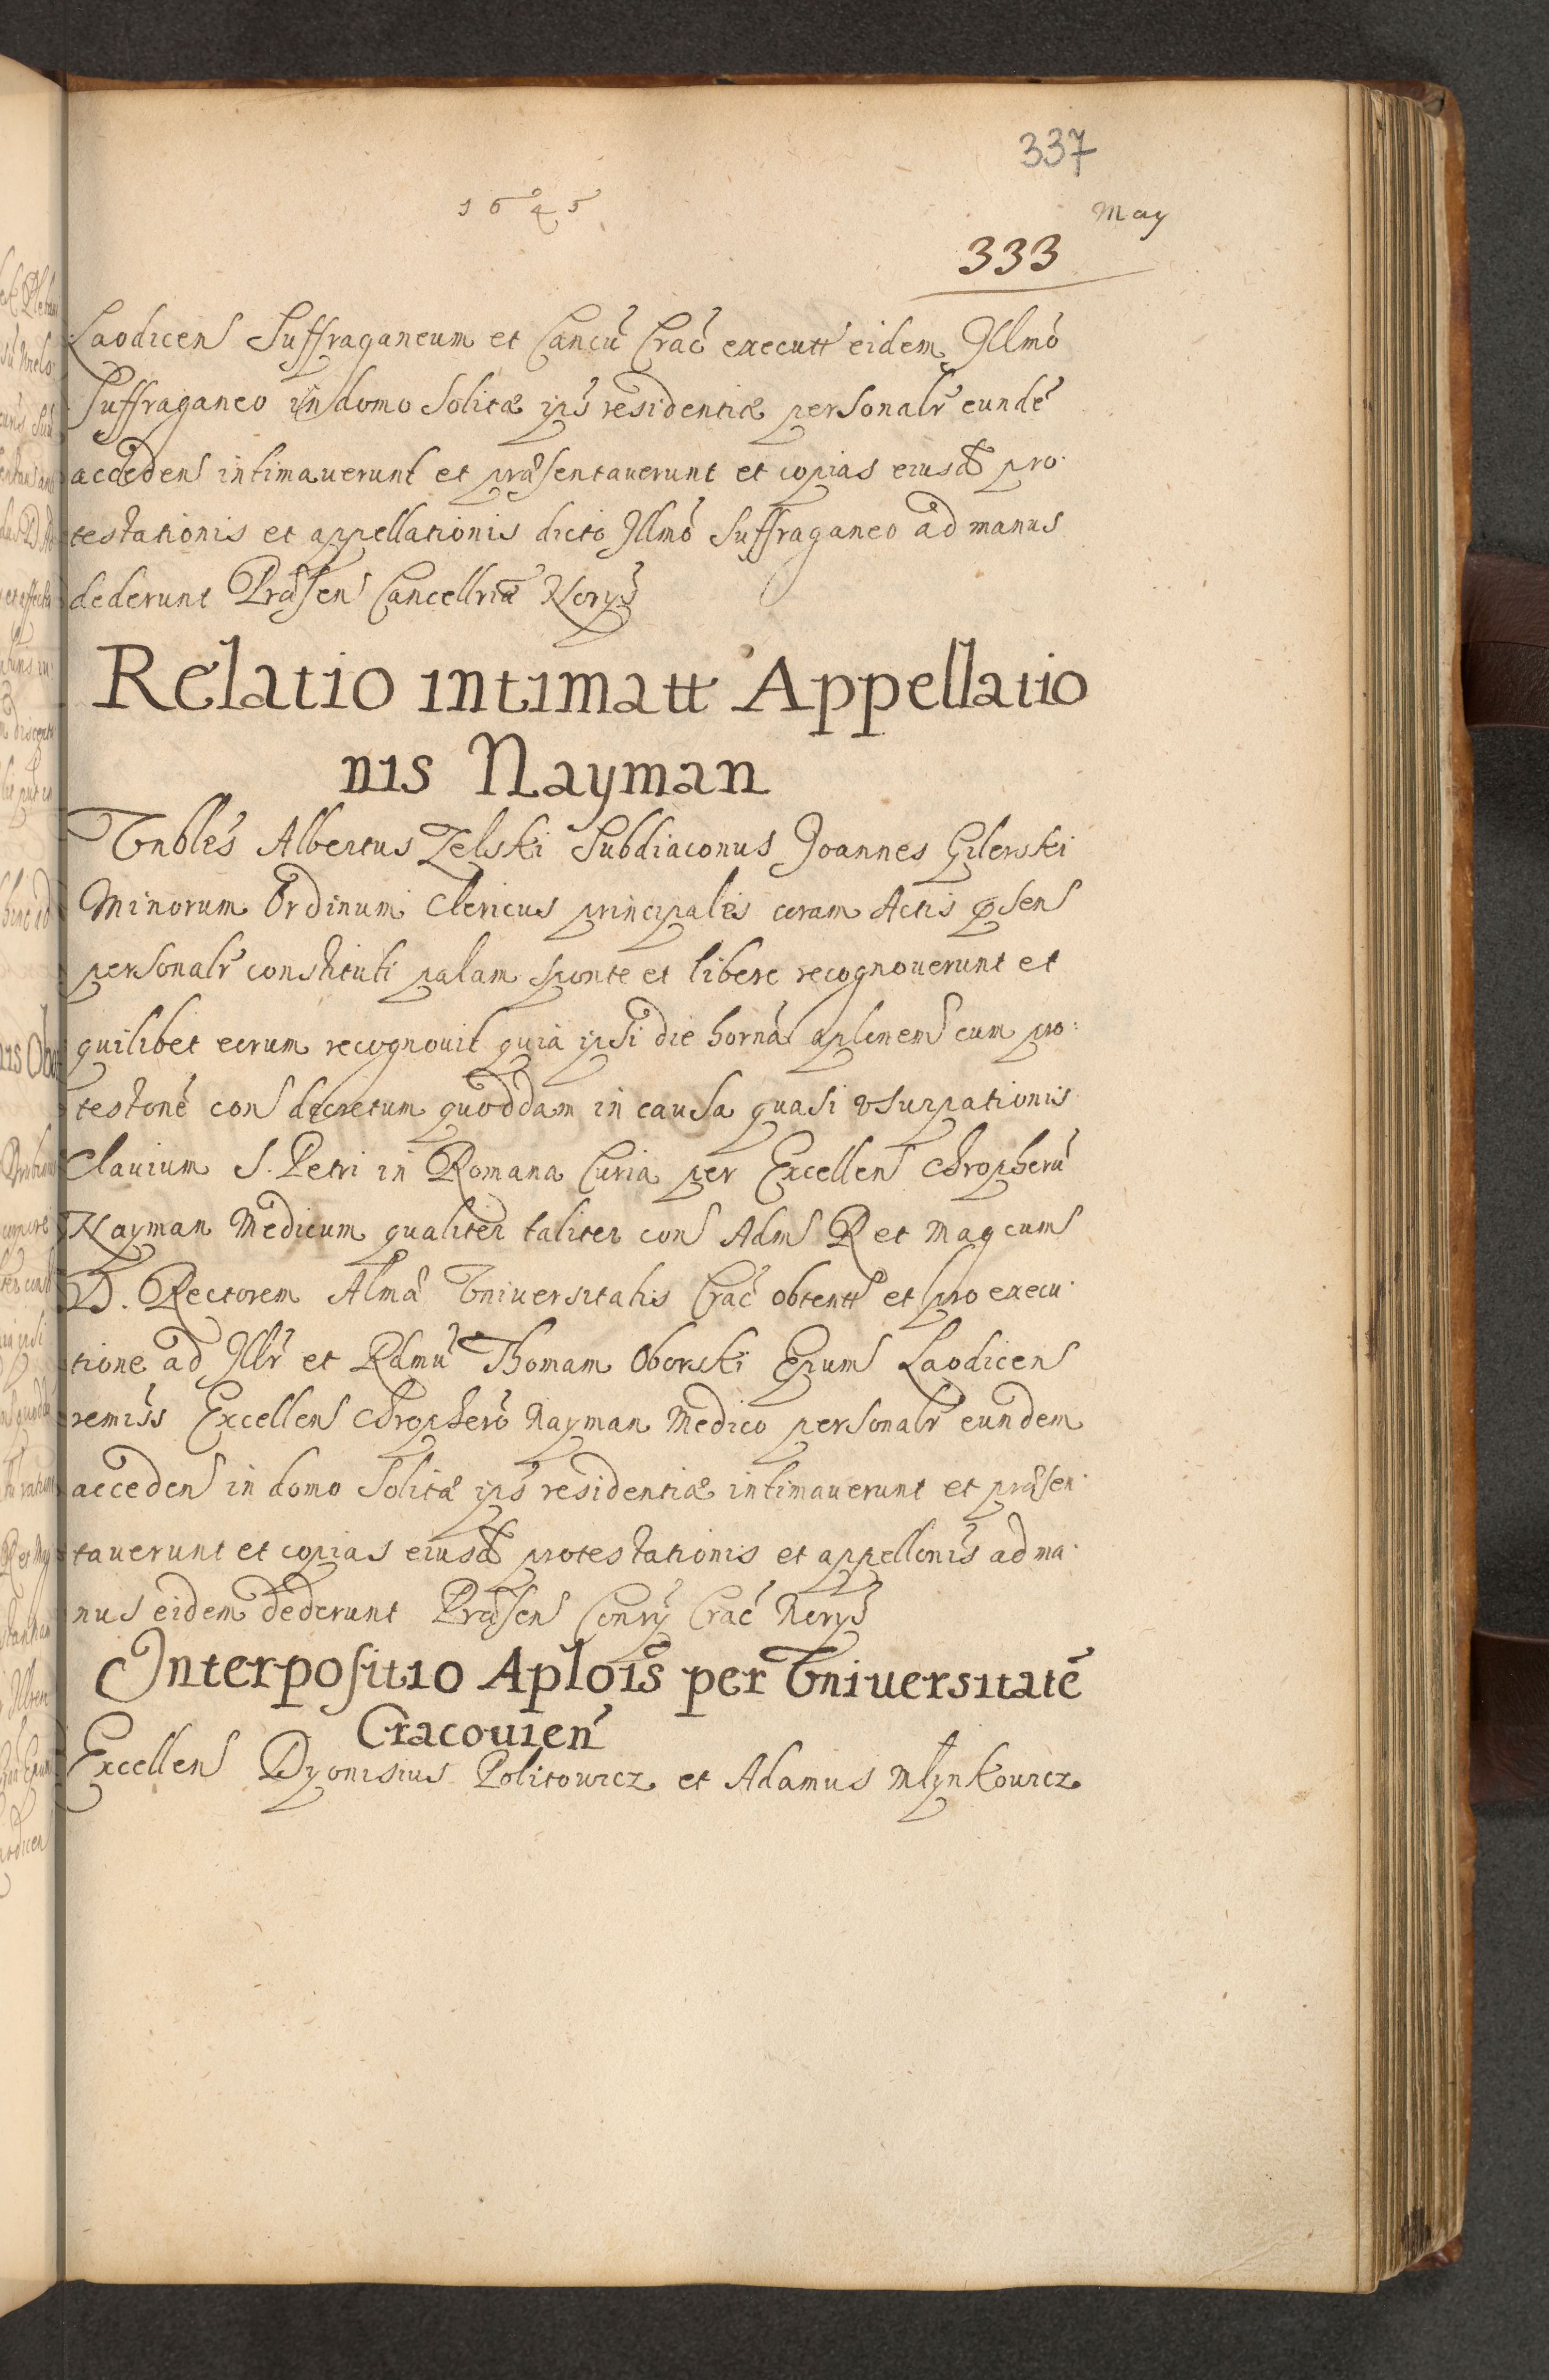 337
1645 May
333
Laodicen Suffraganeum et Cancū Crac̄ executt eidem Illmō
Suffraganeo in domo solitæ ips̄ residentiæ personalr̄ eundē
acceden intimaverunt et præsentaverunt et copias eiusd pro
testationis et appellationis dicto Illmō Suffraganeo ad manus
dederunt Præsen Cancellriæ Norys
Relatio intimatt Appellatio
nis Nayman
Vnbles Albertus Zelski Subdiaconus Joannes Gilerski
Minorum Ordinum Clericus principales coram Actis præsen
personalr̄ constituti palam sponte et libere recognoverunt et
quilibet eorum recognovit quia ipsi die hornā aplnem cum pro
testonē con decretum quoddam in causa quasi vsurpationis
Clavium S. Petri in Romana Curia per Excellen Chropherū
Nayman Medicum qualiter taliter con Adm R et Magcum
D. Rectorem Almæ Vniversitatis Crac̄ obtentt et pro execu
tione ad Illr̄ et Rdmū Thomam Oborski Epum Laodicen
remiss Excellen Chropherō Nayman Medico personalr̄ eundem
acceden in domo solitæ ips̄ residentiæ intimaverunt et præsen
taverunt et copias eiusd protestationis et appellonis ad ma
nus eidem dederunt Præsen Conrÿ Crac̄ Norys
Interpositio Aplois per Vniversitatē
Cracovien
Excellen Dyonisius Politowicz et Adamus Młynkowicz